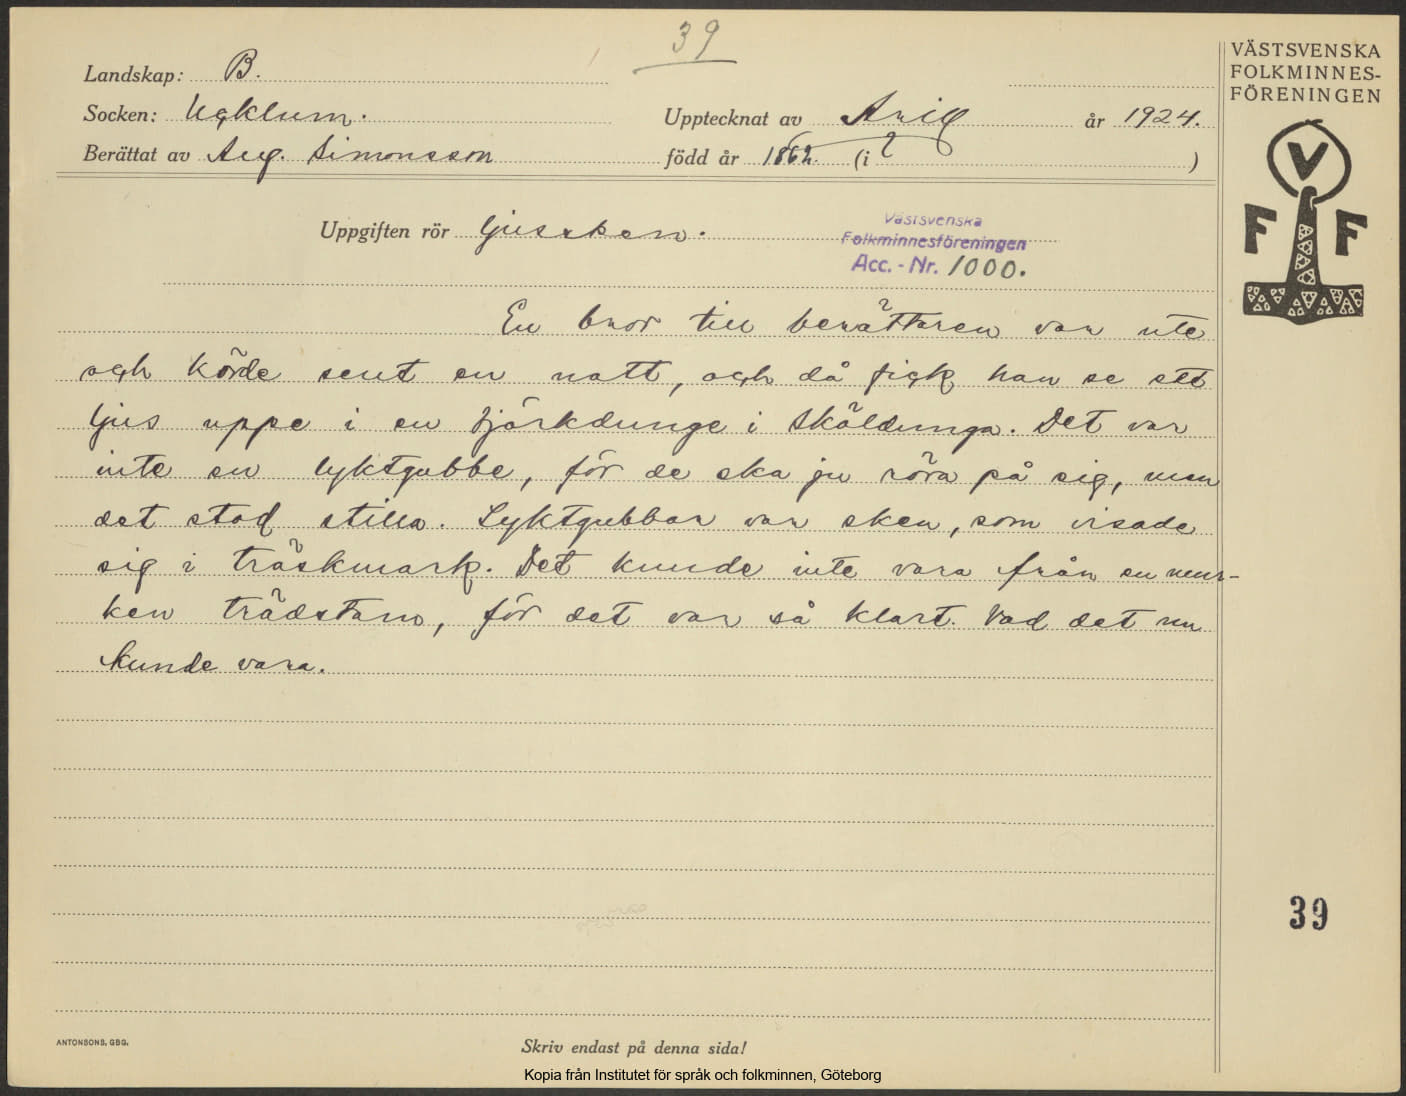 39
VÄSTSVENSKA
FOLKMINNES-
FÖRENINGEN
Landskap: B.
Socken: Ugklum. Upptecknat av Arill år 1924.
Berättat av Aug. Simonsson född år 1862. (i )
V
F F
Uppgiften rör ljussken.
Västsvenska
Folkminnesföreningen
Acc. - Nr. 1000.
En bror till berättaren var ute
och körde sent en natt, och då fick han se ett
ljus uppe i en björkdunge i Sköldunga. Det var
inte en lyktgubbe, för de ska ju röra på sig, men
det stod stilla. Lyktgubbar var sken, som visade
sig i träskmark. Det kunde inte vara från en mur-
ken trädstam, för det var så klart. Vad det nu
kunde vara.
39
ANTONSONS, GBG.
Skriv endast på denna sida!
Kopia från Institutet för språk och folkminnen, Göteborg